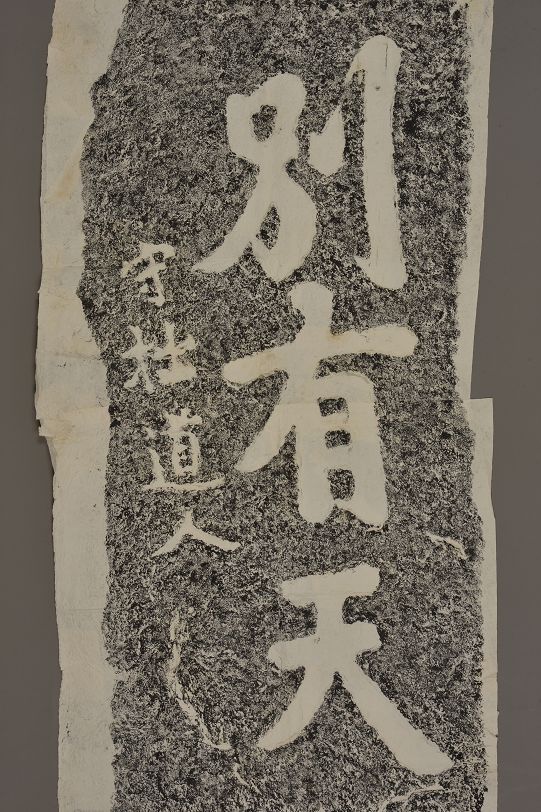 別有天
守杜道人